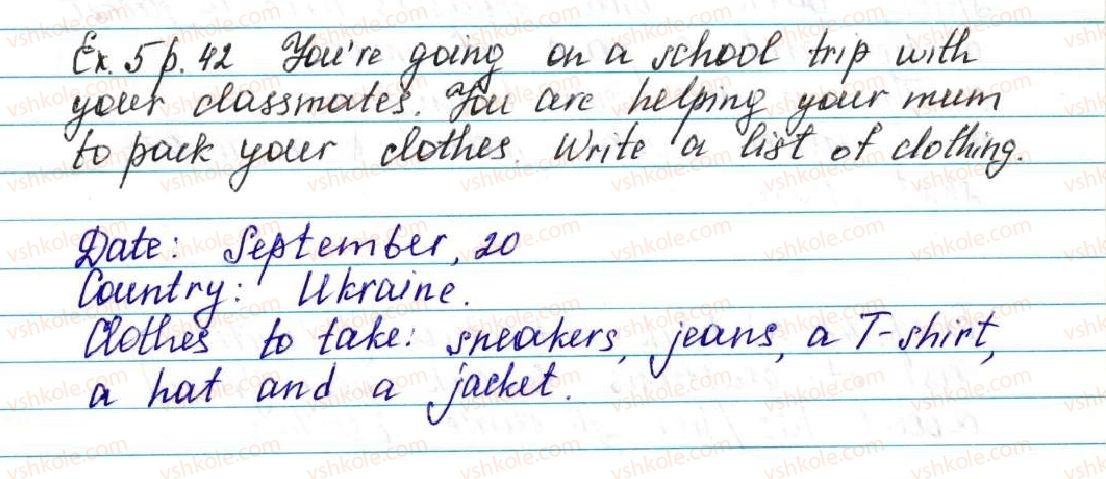 Ex. 5 p. 42 You're going on a school trip with
your classmates. You are helping your mum
to pack your clothes. Write a list of clothing.
Date: September, 20
Country: Ukraine.
Clothes to take: sneakers, jeans, a T-shirt,
a hat and a jacket.